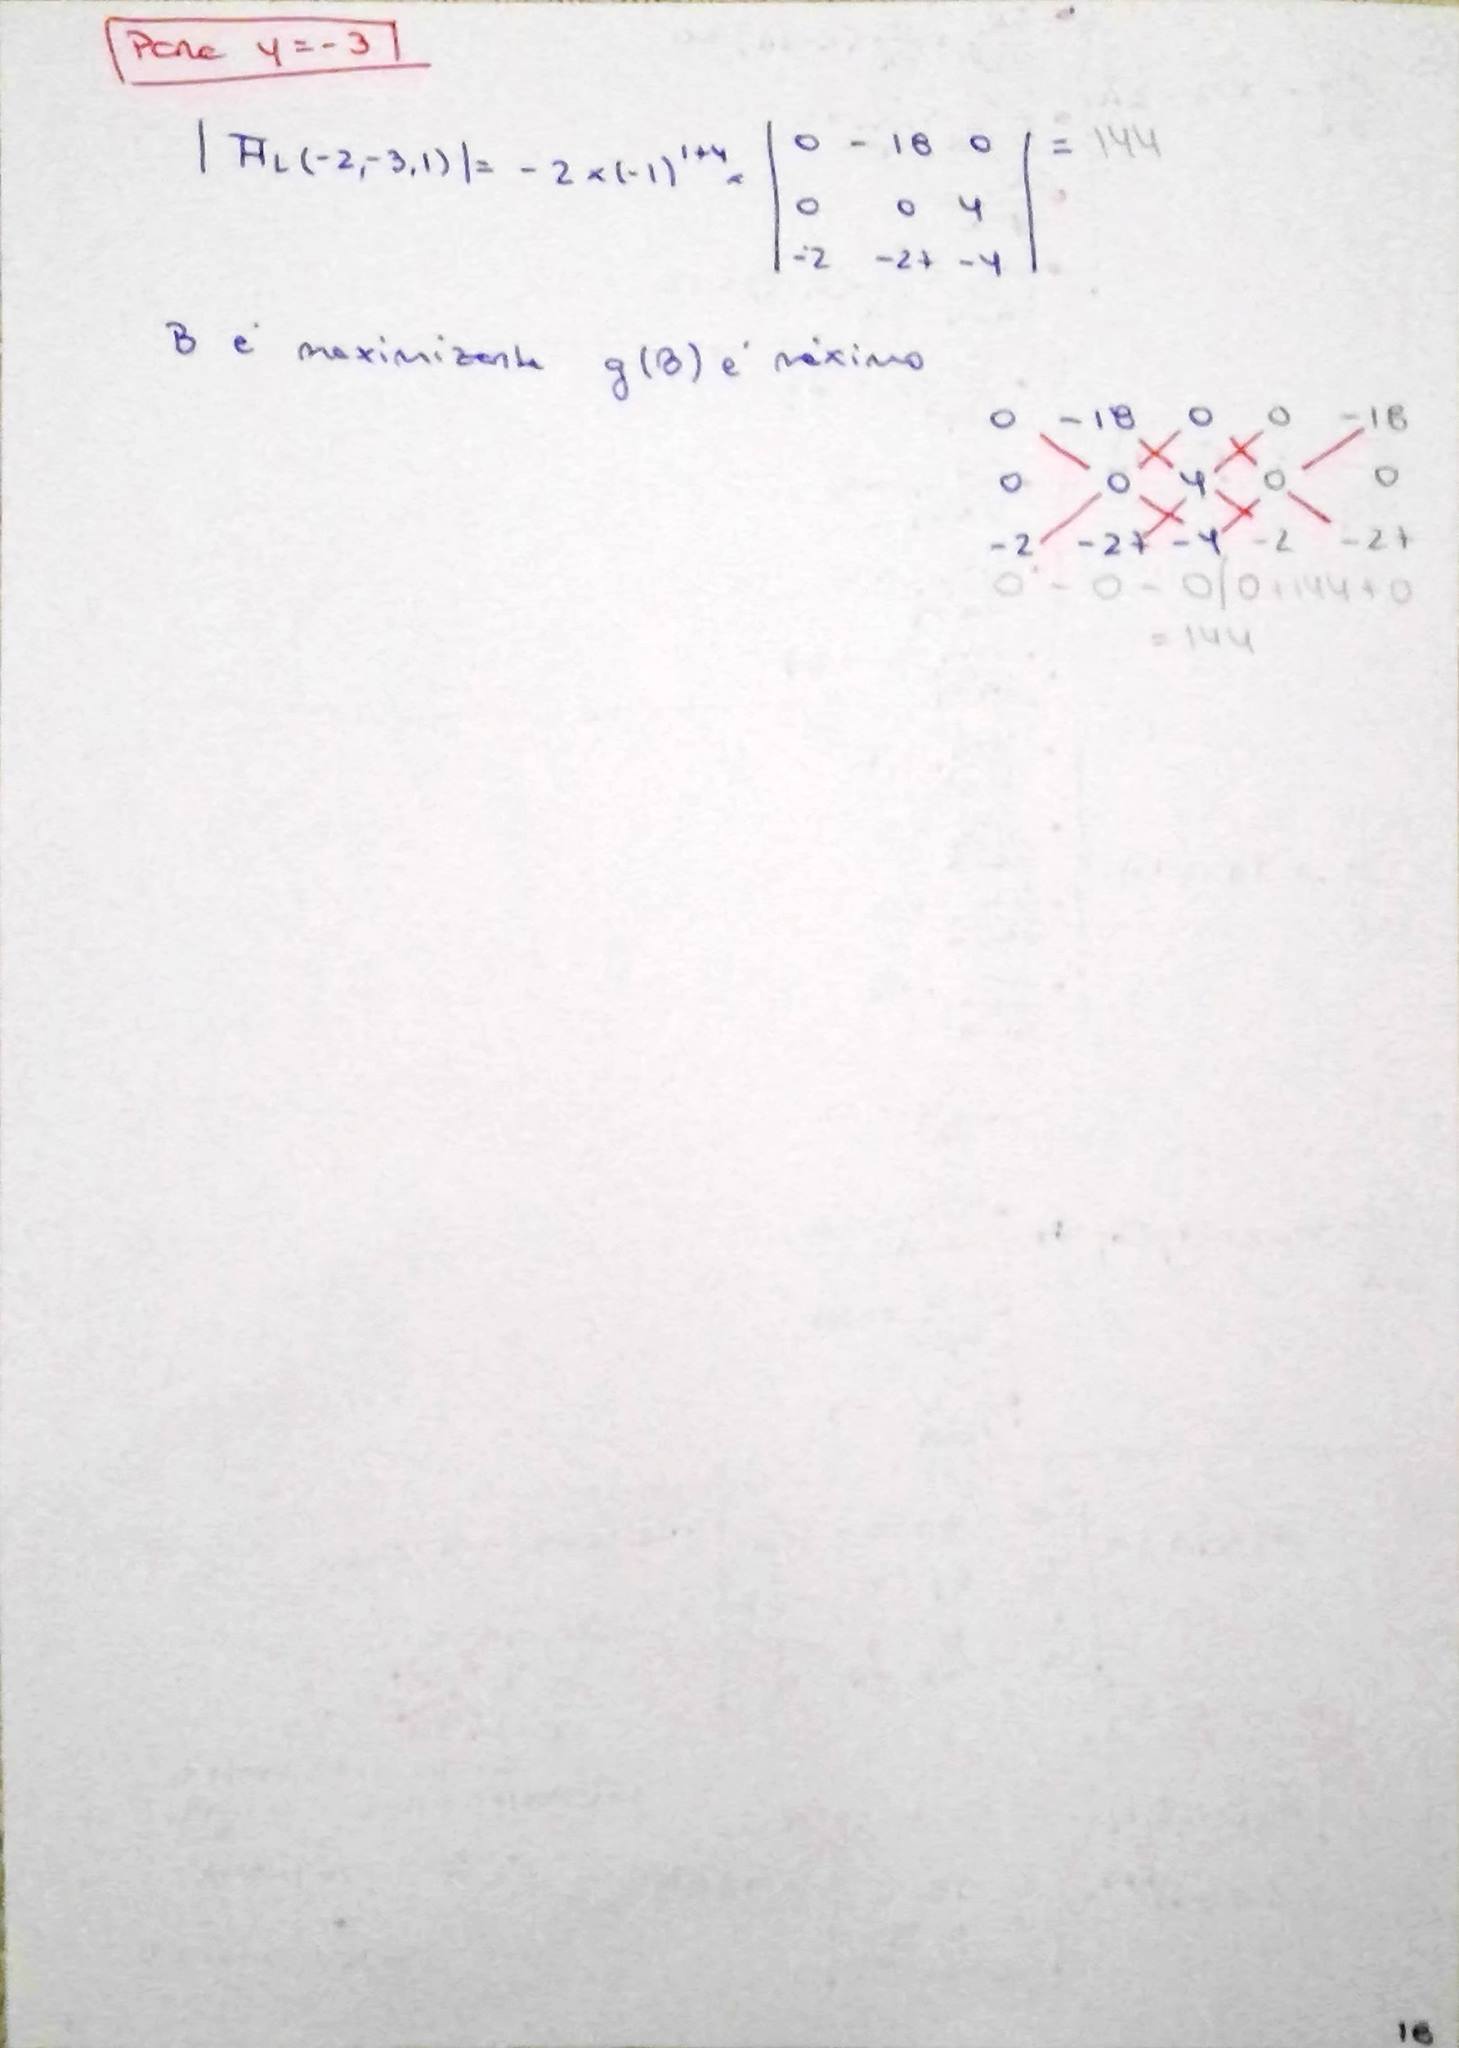 Para y = -3
| H̄L (-2,-3,1) | = -2 × (-1)^1+4 × | 0 -18 0 | = 144
| 0 0 4 |
| -2 -27 -4 |
B é maximizante g(B) é máximo
0 -18 0 0 -18
0 0 4 0 0
-2 -27 -4 -2 -27
0 - 0 - 0 | 0 + 144 + 0
= 144
18